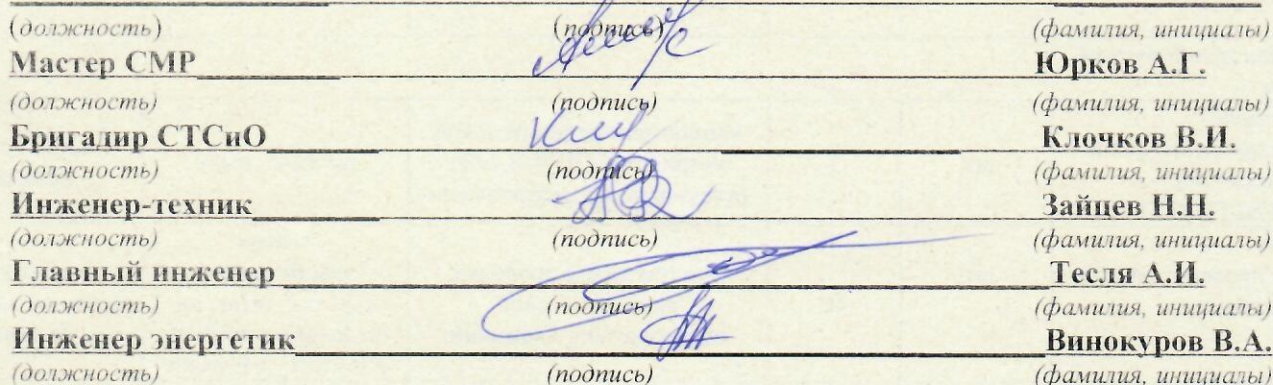 (должность) (подпись) (фамилия, инициалы)
Мастер СМР Юрков А.Г.
(должность) (подпись) (фамилия, инициалы)
Бригадир СТСиО Клочков В.И.
(должность) (подпись) (фамилия, инициалы)
Инженер-техник Зайцев Н.Н.
(должность) (подпись) (фамилия, инициалы)
Главный инженер Тесля А.И.
(должность) (подпись) (фамилия, инициалы)
Инженер энергетик Винокуров В.А.
(должность) (подпись) (фамилия, инициалы)